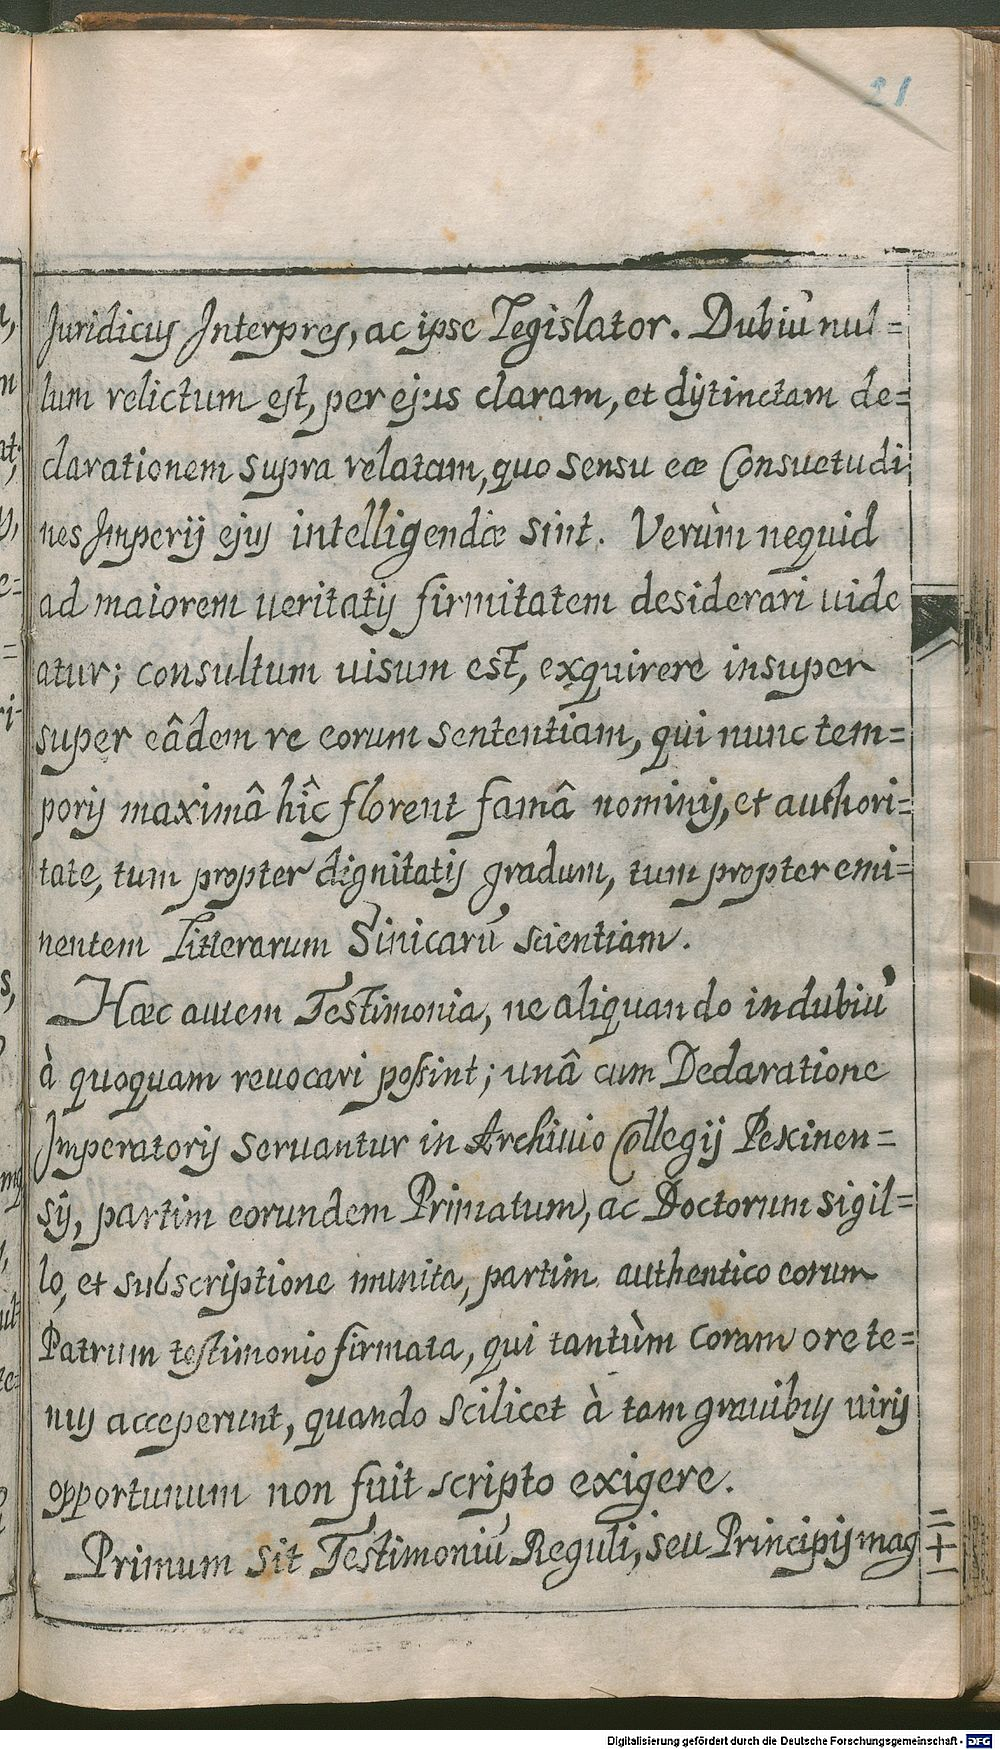 21
Juridicus Interpres, ac ipse Legislator. Dubiū nul=
lum relictum est, per ejus claram, et distinctam de=
clarationem supra relatam, quo sensu eæ Consuetudi
nes Imperij ejus intelligendæ sint. Verùm nequid
ad maiorem veritatis firmitatem desiderari uide
atur; consultum uisum est, exquirere insuper
super eâdem re eorum sententiam, qui nunc tem=
poris maximâ hîc florent famâ nominis, et authori=
tate, tum propter dignitatis gradum, tum propter emi=
nentem Litterarum Sinicarū scientiam.
Hæc autem Testimonia, ne aliquando in dubiū
à quoquam reuocari poßint; unâ cum Declaratione
Imperatoris seruantur in Archiuio Collegij Pekinen=
sis, partim eorundem Primatum, ac Doctorum sigil=
lo, et subscriptione munita, partim authentico eorum
Patrum testimonio firmata, qui tantùm coram ore te=
nus acceperunt, quando scilicet à tam grauibus uiris
opportunum non fuit scripto exigere.
Primum sit Testimoniū Reguli, seu Principis mag
Digitalisierung gefördert durch die Deutsche Forschungsgemeinschaft - DFG